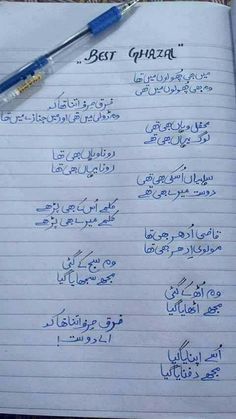 "BEST GHAZAL"
میں بھی پھولوں میں تھا
وہ بھی پھولوں میں تھی
فرق صرف اتنا تھا کہ
وہ ڈولی میں تھی اور میں جنازے میں تھا
محفل وہاں بھی تھی
لوگ یہاں بھی تھے
رونا وہاں بھی تھا
رونا یہاں بھی تھا
سہیلیاں اُسکی بھی تھی
دوست میرے بھی تھے
کلمے اُس کے بھی پڑھے
کلمے میرے بھی پڑھے
قاضی اُدھر بھی تھا
مولوی اِدھر بھی تھا
وہ سج کے گئی
مجھے سجھایا گیا
وہ اُٹھ کے گئی
مجھے اُٹھایا گیا
فرق صرف اتنا تھا کہ
اے دوست!
اُسے اپنایا گیا
مجھے دفنایا گیا